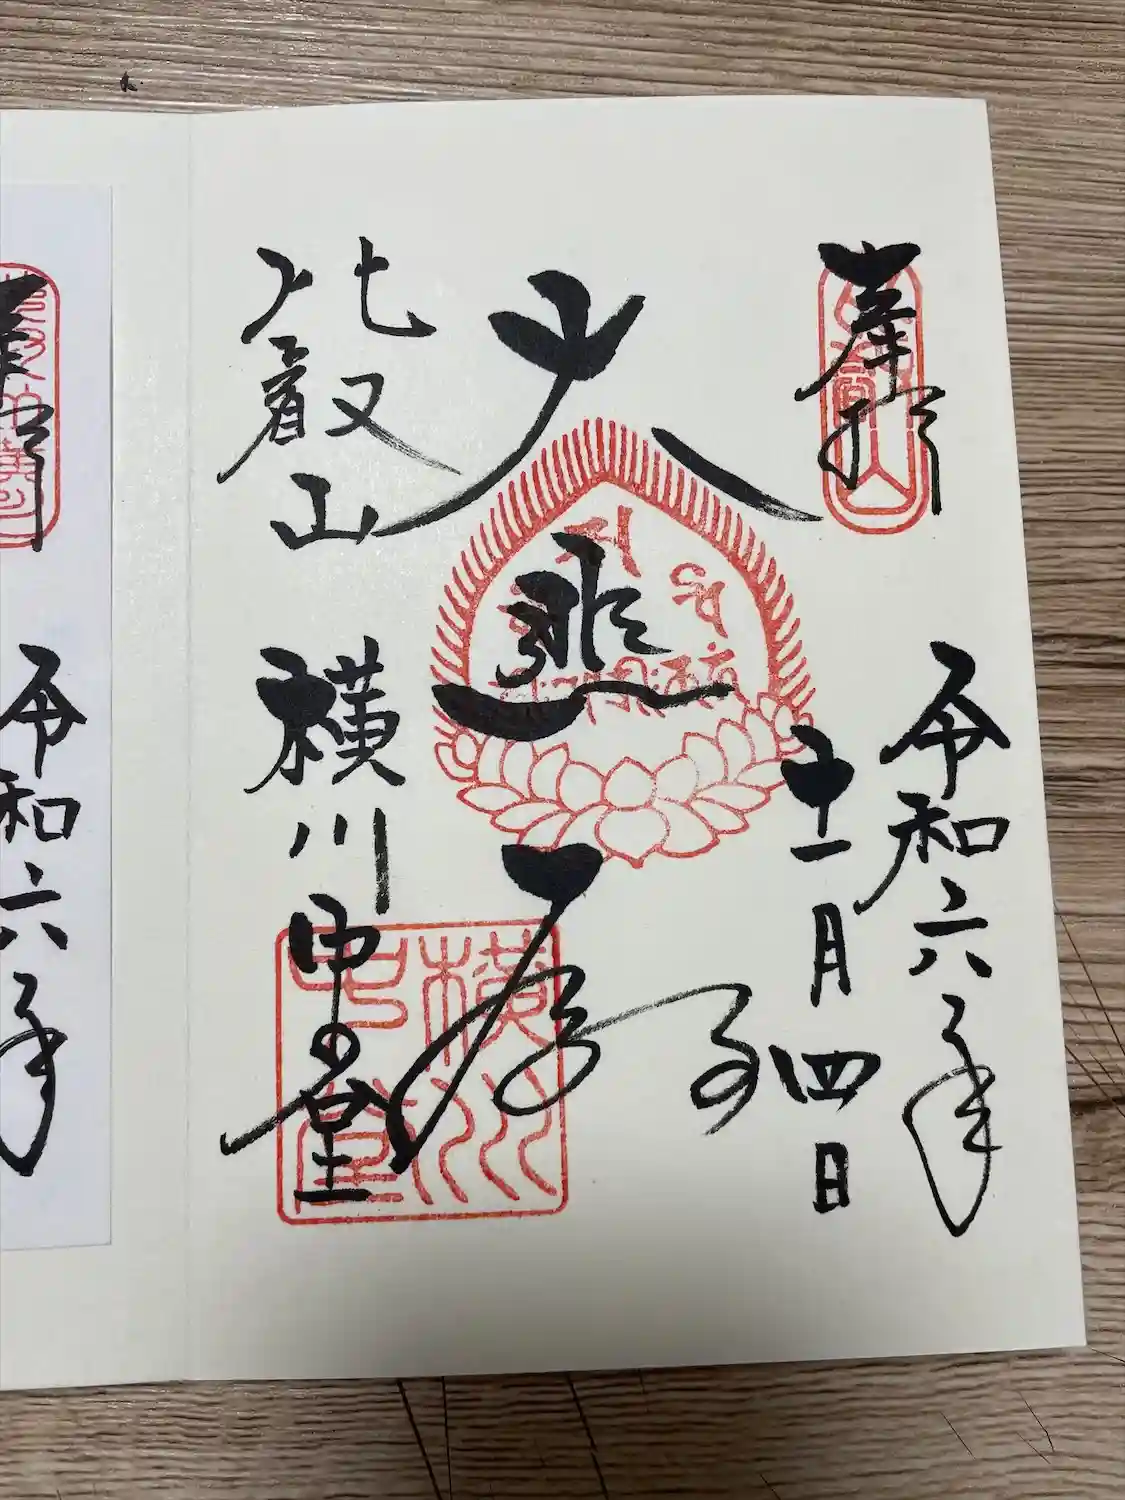 奉拝
令和六年
十一月四日
大悲殿
比叡山
横川中堂
横川
中堂
令和六年